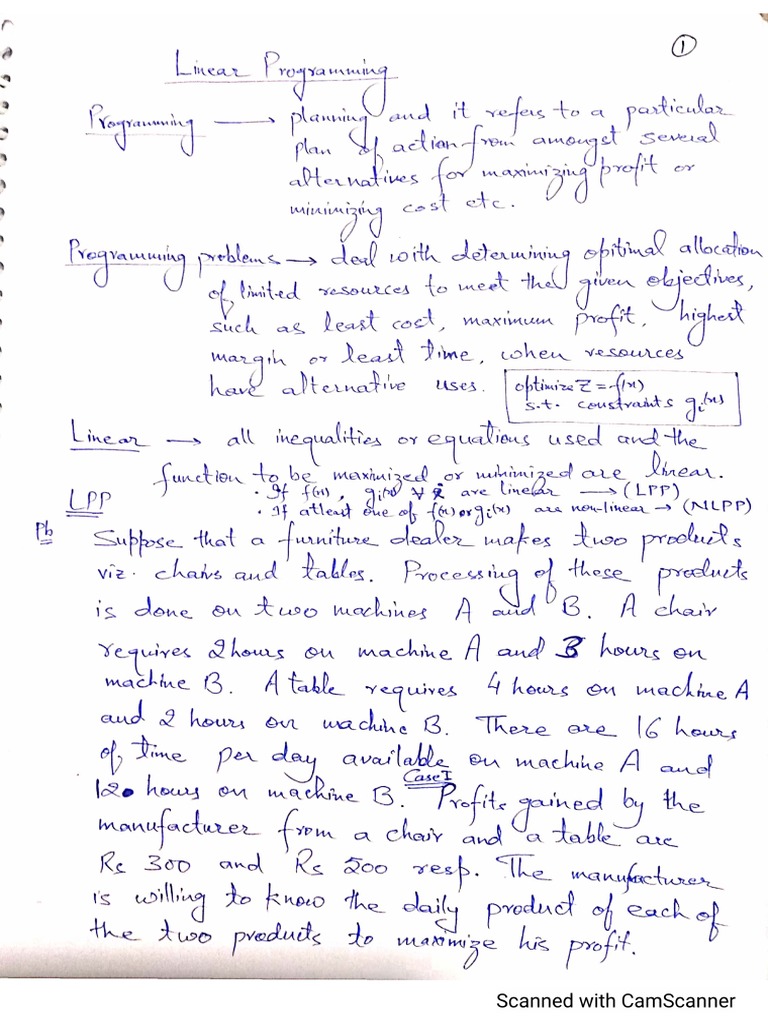 1
Linear Programming
Programming → planning and it refers to a particular
plan of action from amongst several
alternatives for maximizing profit or
minimizing cost etc.
Programming problems → deal with determining opitimal allocation
of limited resources to meet the given objectives,
such as least cost, maximum profit, highest
margin or least time, when resources
have alternative uses.
optimize Z = f(x)
s.t. constraints gi(x)
Linear → all inequalities or equations used and the
function to be maximized or minimized are linear.
LPP
• If f(x), gi(x) ∀ i are linear → (LPP)
• If atleast one of f(x) or gi(x) are non-linear → (NLPP)
Pb Suppose that a furniture dealer makes two products
viz. chairs and tables. Processing of these products
is done on two machines A and B. A chair
requires 2 hours on machine A and 3 hours on
machine B. A table requires 4 hours on machine A
and 2 hours on machine B. There are 16 hours
of time per day available on machine A and
12 hours on machine B. Case I Profits gained by the
manufacturer from a chair and a table are
Rs 300 and Rs 500 resp. The manufacturer
is willing to know the daily product of each of
the two products to maximize his profit.
Scanned with CamScanner